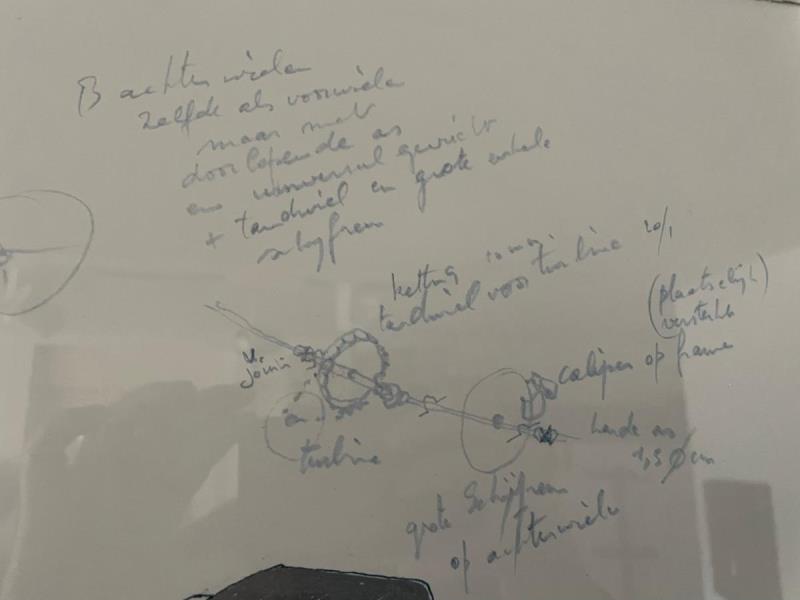 B achterwielen
zelfde als voorwielen
maar met
doorlopende as
en universul gewricht
+ tandwiel en grote enkele
schyfrem
ketting
tandwiel voor turbine 20/1
(plaatselijk
versterkt)
U. Joint
caliper op frame
turbine
1,5 Ø cm
grote Schijfrem
op achterwielen